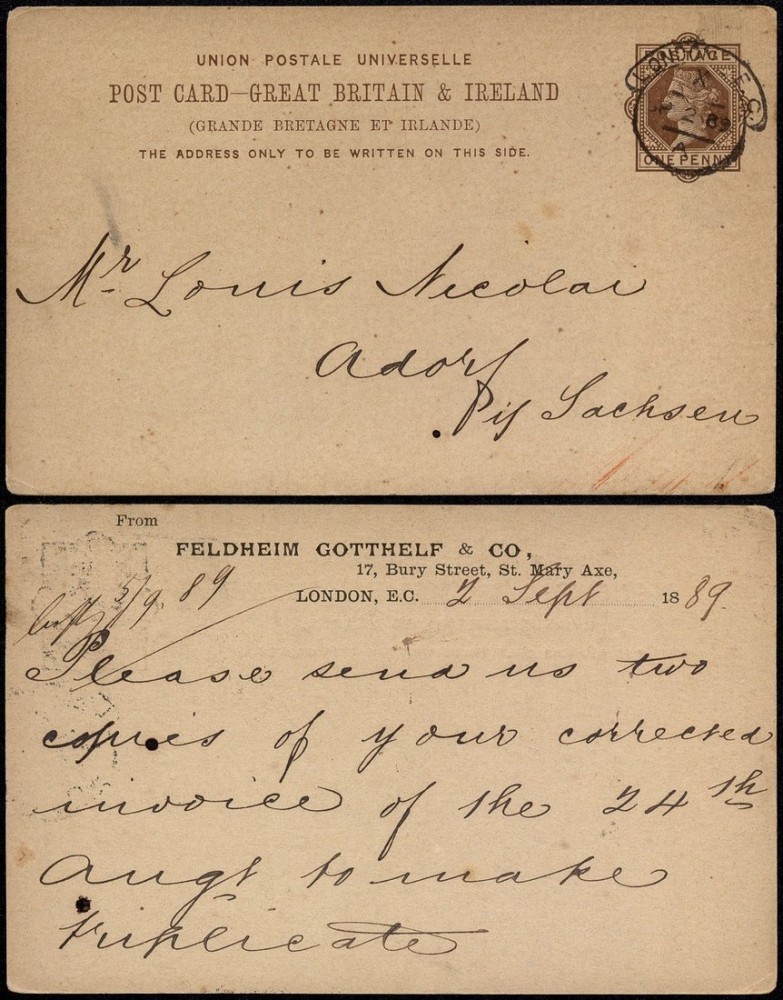 UNION POSTALE UNIVERSELLE
POST CARD—GREAT BRITAIN & IRELAND
(GRANDE BRETAGNE ET IRLANDE)
THE ADDRESS ONLY TO BE WRITTEN ON THIS SIDE.
POSTAGE
ONE PENNY
LONDON E.C.
89
Mr. Louis Nicolai
Adorf
Sachsen
From
FELDHEIM GOTTHELF & CO,
17, Bury Street, St. Mary Axe,
LONDON, E.C. 2 Sept 1889.
5/9. 89
Please send us two
copies of your corrected
invoice of the 24th
Augt to make
triplicate